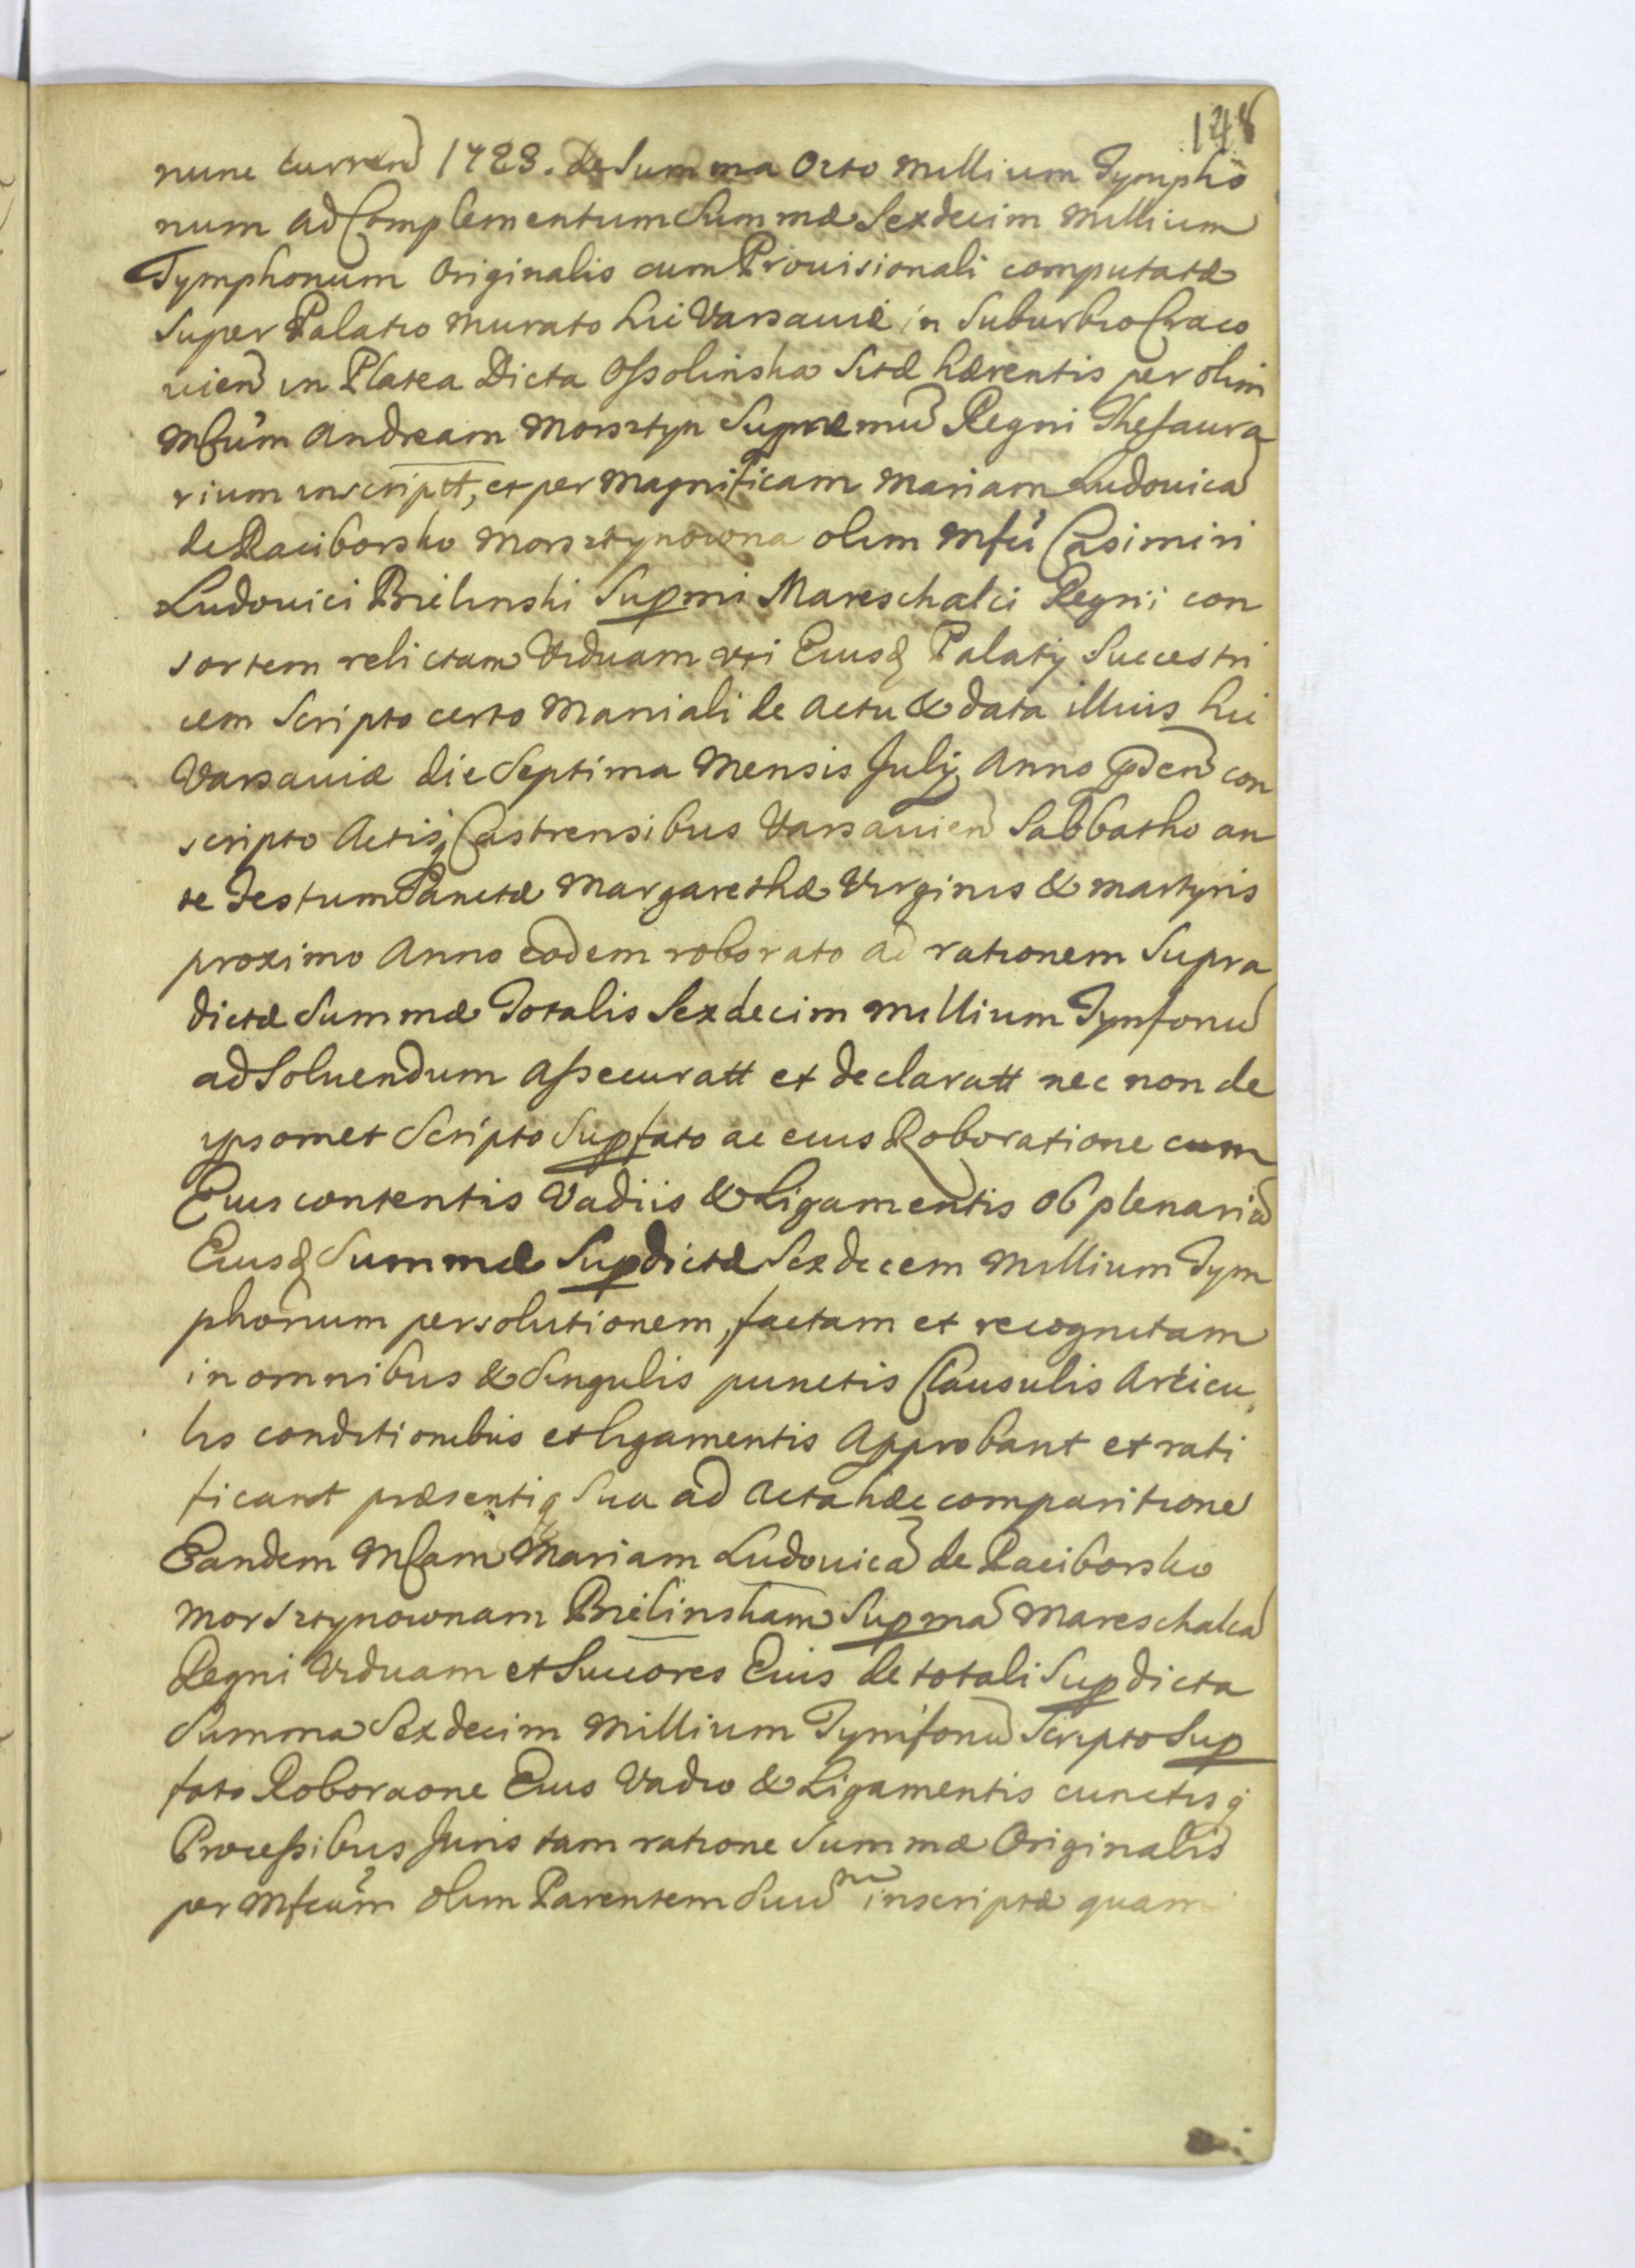 148
nunc curren 1723. de Summa Octo Millium Tympho
num ad Complementum Summæ Sexdecim Millium
Tymphonum Originalis cum Prouisionali computatæ
super Palatio Murato hic Varsauiæ in Suburbio Craco
uien in Platea Dicta Ossolinska Sitæ hærentis per olim
Mfcum Andream Morsztyn Supræmu Regni Thesaura
rium inscriptt, et per Magnificam Mariam Ludouica
de Raciborsko Morsztynowna olim Mfci Casimiri
Ludouici Bielinski Supmi Mareschalci Regni con
sortem relictam Viduam uti Eiusq Palatij Succestri
cem Scripto certo Maniali de Actu & data illius hic
Varsauiæ die Septima Mensis Julij Anno pden con
scripto Actisq Castrensibus Varsauien Sabbatho an
te Festum Sanctæ Margarethæ Virginis & Martyris
proximo Anno eodem roborato ad rationem Supra
dictæ Summæ Totalis Sexdecim Millium Tynfonu
ad Soluendum Assecuratt et declaratt nec non de
ipsomet Scripto Supfato ac eius Roboratione cum
Eius contentis Vadiis & Ligamentis ob plenaria
Eiusq Summæ Supdictæ Sexdecem Millium Tym
phonum persolutionem, factam et recognitam
in omnibus & Singulis punctis Clausulis Articu
lis conditionibus et ligamentis Approbant et rati
ficant præsentiq Sua ad Acta hæc comparitione
Eandem Mfcam Mariam Ludouica de Raciborsko
Morsztynownam Bielinskam Supma Mareschalca
Regni Viduam et Succores Eius de totali Supdicta
Summa Sexdecim Millium Tymfonu Scripto Sup
fato Roboraone Eius Vadio & Ligamentis cunctisq
Processibus Juris tam ratione Summæ Originalis
per Mfcum olim Parentem Suu inscriptæ quam